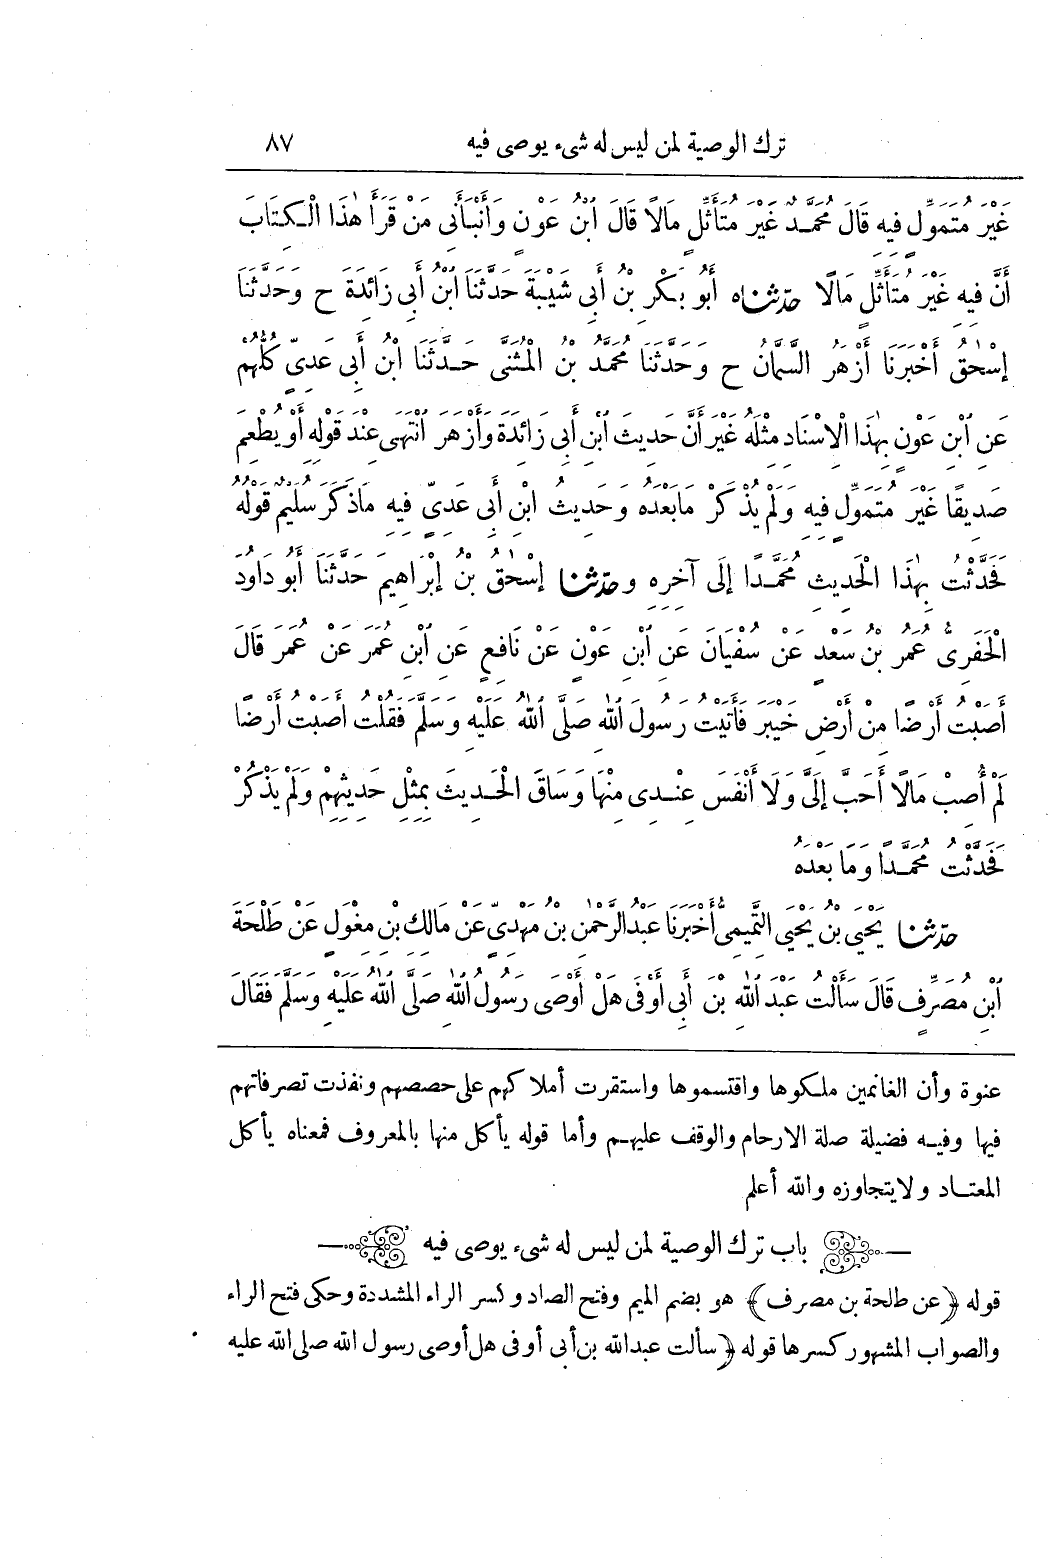 ترك الوصية لمن ليس له شىء يوصى فيه ٨٧
غَيْرَ مُتَمَوِّلٍ فِيهِ قَالَ مُحَمَّدٌ غَيْرَ مُتَأَثِّلٍ مَالًا قَالَ ابْنُ عَوْنٍ وَأَنْبَأَنِى مَنْ قَرَأَ هٰذَا الْكِتَابَ
أَنَّ فِيهِ غَيْرَ مُتَأَثِّلٍ مَالًا حدثناه أَبُو بَكْرِ بْنُ أَبِى شَيْبَةَ حَدَّثَنَا ابْنُ أَبِى زَائِدَةَ ح وَحَدَّثَنَا
إِسْحٰقُ أَخْبَرَنَا أَزْهَرُ السَّمَّانُ ح وَحَدَّثَنَا مُحَمَّدُ بْنُ الْمُثَنَّى حَدَّثَنَا ابْنُ أَبِى عَدِىٍّ كُلُّهُمْ
عَنِ ابْنِ عَوْنٍ بِهٰذَا الْاِسْنَادِ مِثْلَهُ غَيْرَ أَنَّ حَدِيثَ ابْنِ أَبِى زَائِدَةَ وَأَزْهَرَ انْتَهَى عِنْدَ قَوْلِهِ أَوْ يُطْعِمَ
صَدِيقًا غَيْرَ مُتَمَوِّلٍ فِيهِ وَلَمْ يُذْكَرْ مَابَعْدَهُ وَحَدِيثُ ابْنِ أَبِى عَدِىٍّ فِيهِ مَاذَكَرَ سُلَيْمٌ قَوْلُهُ
فَحَدَّثْتُ بِهٰذَا الْحَدِيثِ مُحَمَّدًا إِلَى آخِرِهِ وحدثنا إِسْحٰقُ بْنُ إِبْرَاهِيمَ حَدَّثَنَا أَبُو دَاوُدَ
الْحَفَرِىُّ عُمَرُ بْنُ سَعْدٍ عَنْ سُفْيَانَ عَنِ ابْنِ عَوْنٍ عَنْ نَافِعٍ عَنِ ابْنِ عُمَرَ عَنْ عُمَرَ قَالَ
أَصَبْتُ أَرْضًا مِنْ أَرْضِ خَيْبَرَ فَأَتَيْتُ رَسُولَ اللّٰهِ صَلَّى اللّٰهُ عَلَيْهِ وَسَلَّمَ فَقُلْتُ أَصَبْتُ أَرْضًا
لَمْ أُصِبْ مَالًا أَحَبَّ إِلَىَّ وَلَا أَنْفَسَ عِنْدِى مِنْهَا وَسَاقَ الْحَدِيثَ بِمِثْلِ حَدِيثِهِمْ وَلَمْ يَذْكُرْ
فَحَدَّثْتُ مُحَمَّدًا وَمَا بَعْدَهُ
حدثنا يَحْيَى بْنُ يَحْيَى التَّمِيمِىُّ أَخْبَرَنَا عَبْدُ الرَّحْمٰنِ بْنُ مَهْدِىٍّ عَنْ مَالِكِ بْنِ مِغْوَلٍ عَنْ طَلْحَةَ
ابْنِ مُصَرِّفٍ قَالَ سَأَلْتُ عَبْدَ اللّٰهِ بْنَ أَبِى أَوْفَى هَلْ أَوْصَى رَسُولُ اللّٰهِ صَلَّى اللّٰهُ عَلَيْهِ وَسَلَّمَ فَقَالَ
عنوة وأن الغانمين ملكوها واقتسموها واستقرت أملاكهم على حصصهم ونفذت تصرفاتهم
فيها وفيه فضيلة صلة الارحام والوقف عليهم وأما قوله يأكل منها بالمعروف فمعناه يأكل
المعتاد ولايتجاوزه والله أعلم
باب ترك الوصية لمن ليس له شىء يوصى فيه
قوله ﴿عن طلحة بن مصرف﴾ هو بضم الميم وفتح الصاد وكسر الراء المشددة وحكى فتح الراء
والصواب المشهور كسرها قوله ﴿سألت عبدالله بن أبى أوفى هل أوصى رسول الله صلى الله عليه